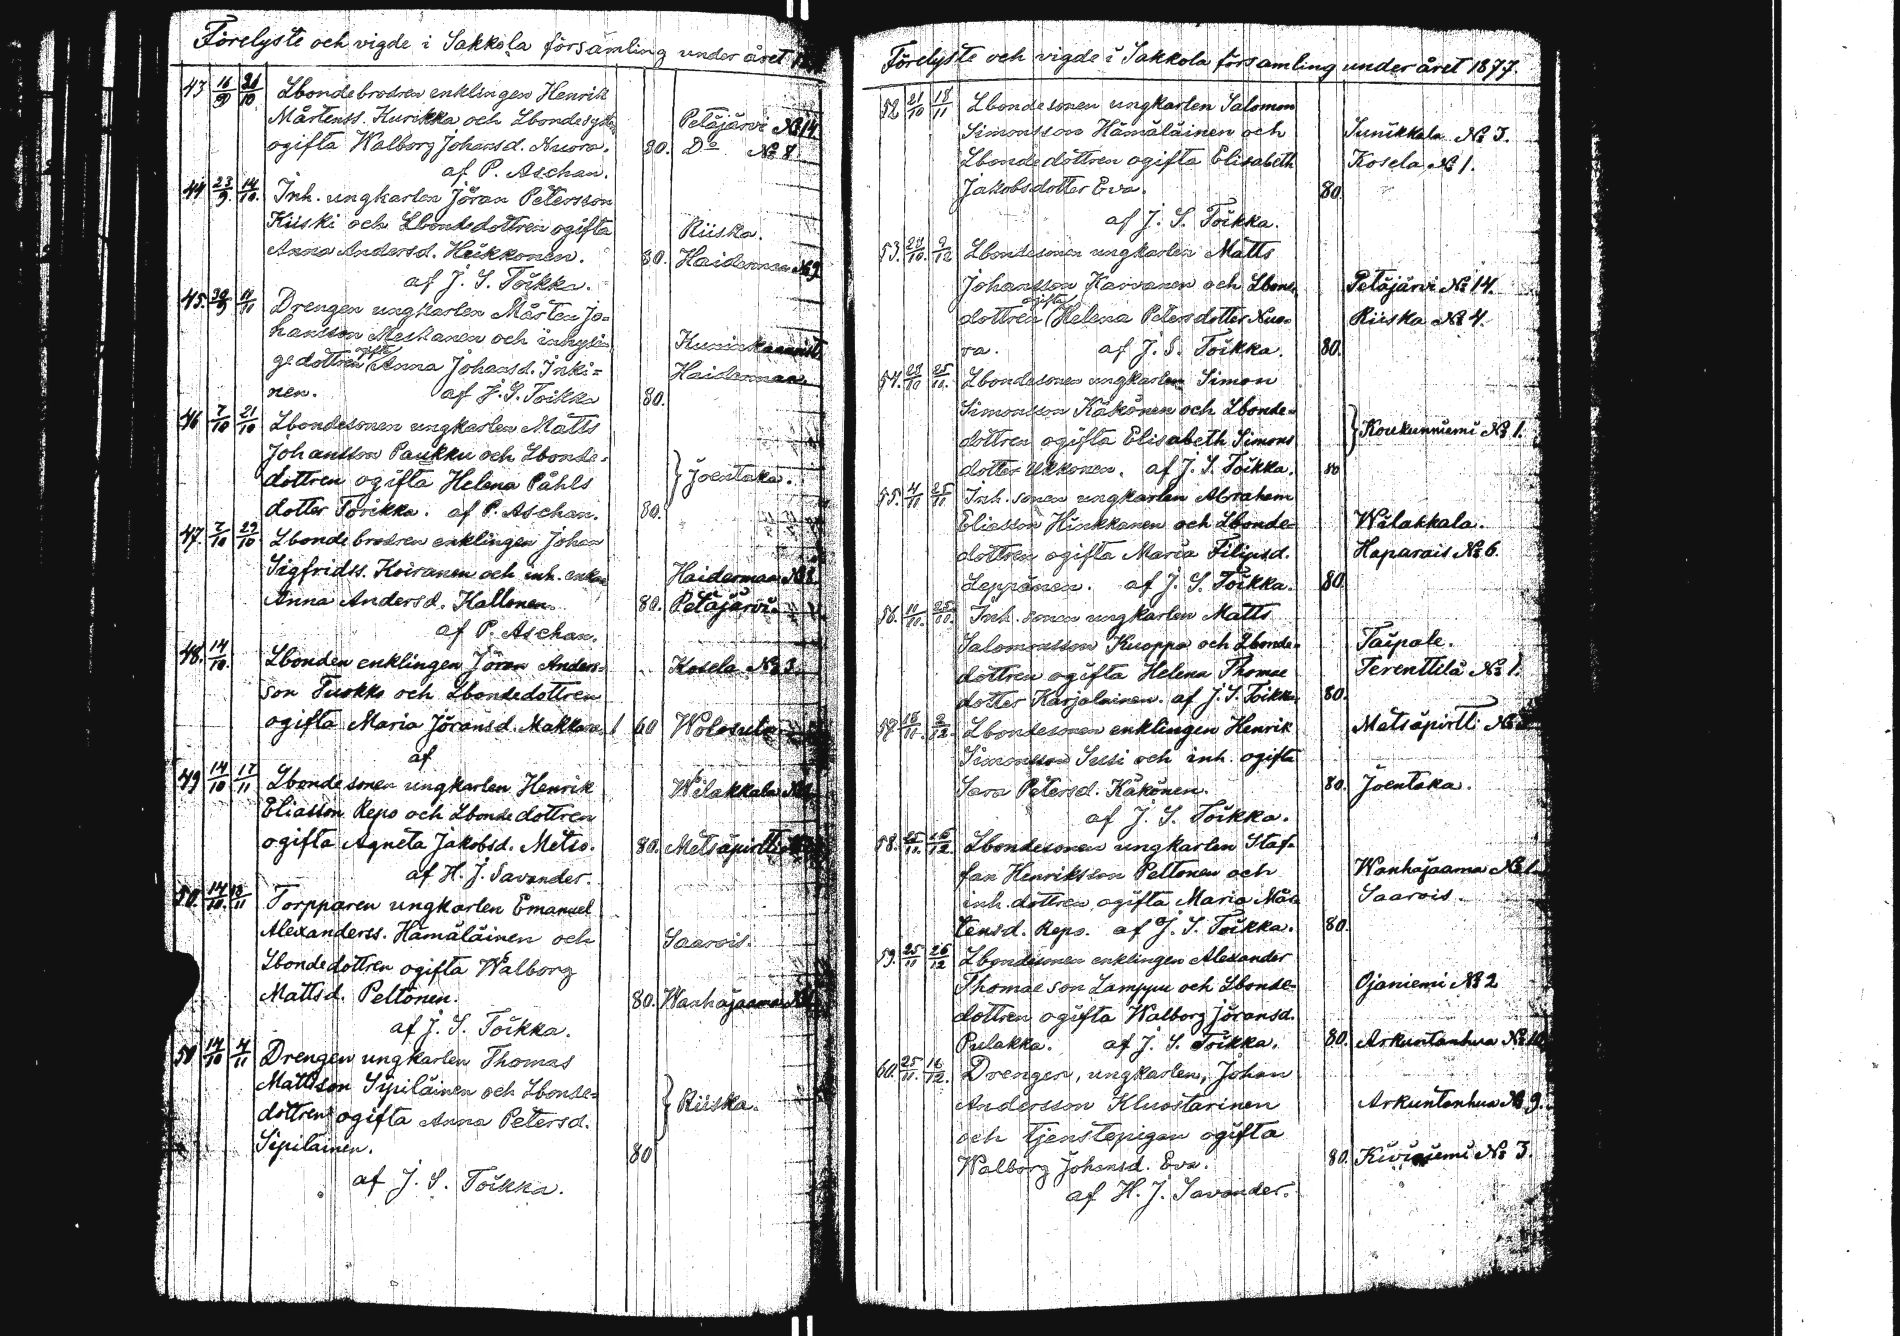 Förelyste och vigde i Sakkola församling under året
43 16/9 21/10 Lbondebrodren enklingen Henrik
Mårtenss. Kurikka och Lbondesyst. Petäjärvi № 14
ogifta Walborg Johansd. Nuora. 80. Do № 8
af P. Aschan.
44 23/9 14/10 Inh. ungkarlen Jöran Petersson
Kiiski och Lbondedottren ogifta Riiska.
Anna Andersd. Heikkonen. 80. Haiderman № 9
af J. S. Toikka.
45. 30/9 11/11 Drengen ungkarlen Mårten Jo=
hansson Meskanen och inhysin
ge dottren ogifta Anna Johansd. Inki= Haiderman.
nen. af J. S. Toikka 80.
46 7/10 21/10 Lbondesonen ungkarlen Matts
Johansson Paukku och Lbonde=
dottren ogifta Helena Påhls } Joentaka.
dotter Torikka. af P. Aschan. 80.
47. 7/10 29/10 Lbondebrodren enklingen Johan
Sigfridss. Koiranen och inh. enkan Haiderman № 8.
Anna Andersd. Kallonen. 80. Petäjärvi.
af P. Aschan.
48. 14/10. Lbonden enklingen Jöran Anders= Kosela № 3.
son Tuokko och Lbondedottren
ogifta Maria Jöransd. Makkara 1 60 Wolosula
af
49 14/10 17/11 Lbondesonen ungkarlen Henrik Wilakkala №
Eliasson Repo och Lbondedottren
ogifta Agneta Jakobsd. Metso. 80. Metsäpirtti
af H. J. Savander.
50. 14/10. 18/11 Torpparen ungkarlen Emanuel
Alexanderss. Hämäläinen och Saarois.
Lbondedottren ogifta Walborg
Mattsd. Peltonen. 80. Wanhajaama №
af J. S. Toikka.
51 14/10 4/11 Drengen ungkarlen Thomas
Mattsson Sipiläinen och Lbonde=
dottren ogifta Anna Petersd. } Riiska.
Sipiläinen. 80
af J. S. Toikka.
Förelyste och vigde i Sakkola församling under året 1877.
52 21/10 18/11 Lbondesonen ungkarlen Salomon
Simonsson Hämäläinen och Sunikkala № 5.
Lbondedottren ogifta Elisabeth Kosela № 1.
Jakobsdotter Eva. 80.
af J. S. Toikka.
53. 28/10. 2/12 Lbondesonen ungkarlen Matts
Johansson Karvanen och Lbonde Petäjärvi № 14.
dottren ogifta Helena Petersdotter Nuo= Riiska № 4.
ra. af J. S. Toikka. 80.
54. 28/10 25/11. Lbondesonen ungkarlen Simon
Simonsson Käkönen och Lbonde=
dottren ogifta Elisabeth Simons } Koukunniemi № 1.
dotter Ukkonen. af J. S. Toikka. 80
55. 4/11 25/11 Inh. sonen ungkarlen Abraham
Eliasson Hinkkanen och Lbonde= Wilakkala.
dottren ogifta Maria Filipsd. Haparais № 6.
Leppänen. af J. S. Toikka. 80
56. 11/11. 25/11. Inh. sonen ungkarlen Matts
Salomonsson Kuoppa och Lbonde= Taipale.
dottren ogifta Helena Thomae Terenttilä № 1.
dotter Karjalainen. af J. S. Toikka 80.
57 18/11. 2/12. Lbondesonen enklingen Henrik Metsäpirtti №
Simonsson Susi och inh. ogifta
Sara Petersd. Käkönen. 80. Joentaka.
af J. S. Toikka.
58. 25/11. 26/12. Lbondesonen ungkarlen Staf=
fan Henriksson Peltonen och Wanhajaama № 1.
inh. dottren ogifta Maria Mår Saarois.
tensd. Repo. af J. S. Toikka. 80.
59. 25/11 26/12 Lbondesonen enklingen Alexander
Thomaeson Lamppu och Lbonde= Ojaniemi № 2
dottren ogifta Walborg Jöransd.
Pulakka. af J. S. Toikka. 80. Arkuntanhua № 10.
60. 25/11. 16/12. Drengen, ungkarlen, Johan
Andersson Kluostarinen Arkuntanhua № 9.
och tjenstepigan ogifta
Walborg Johansd. Eva. 80. Kiviniemi № 3.
af H. J. Savander.